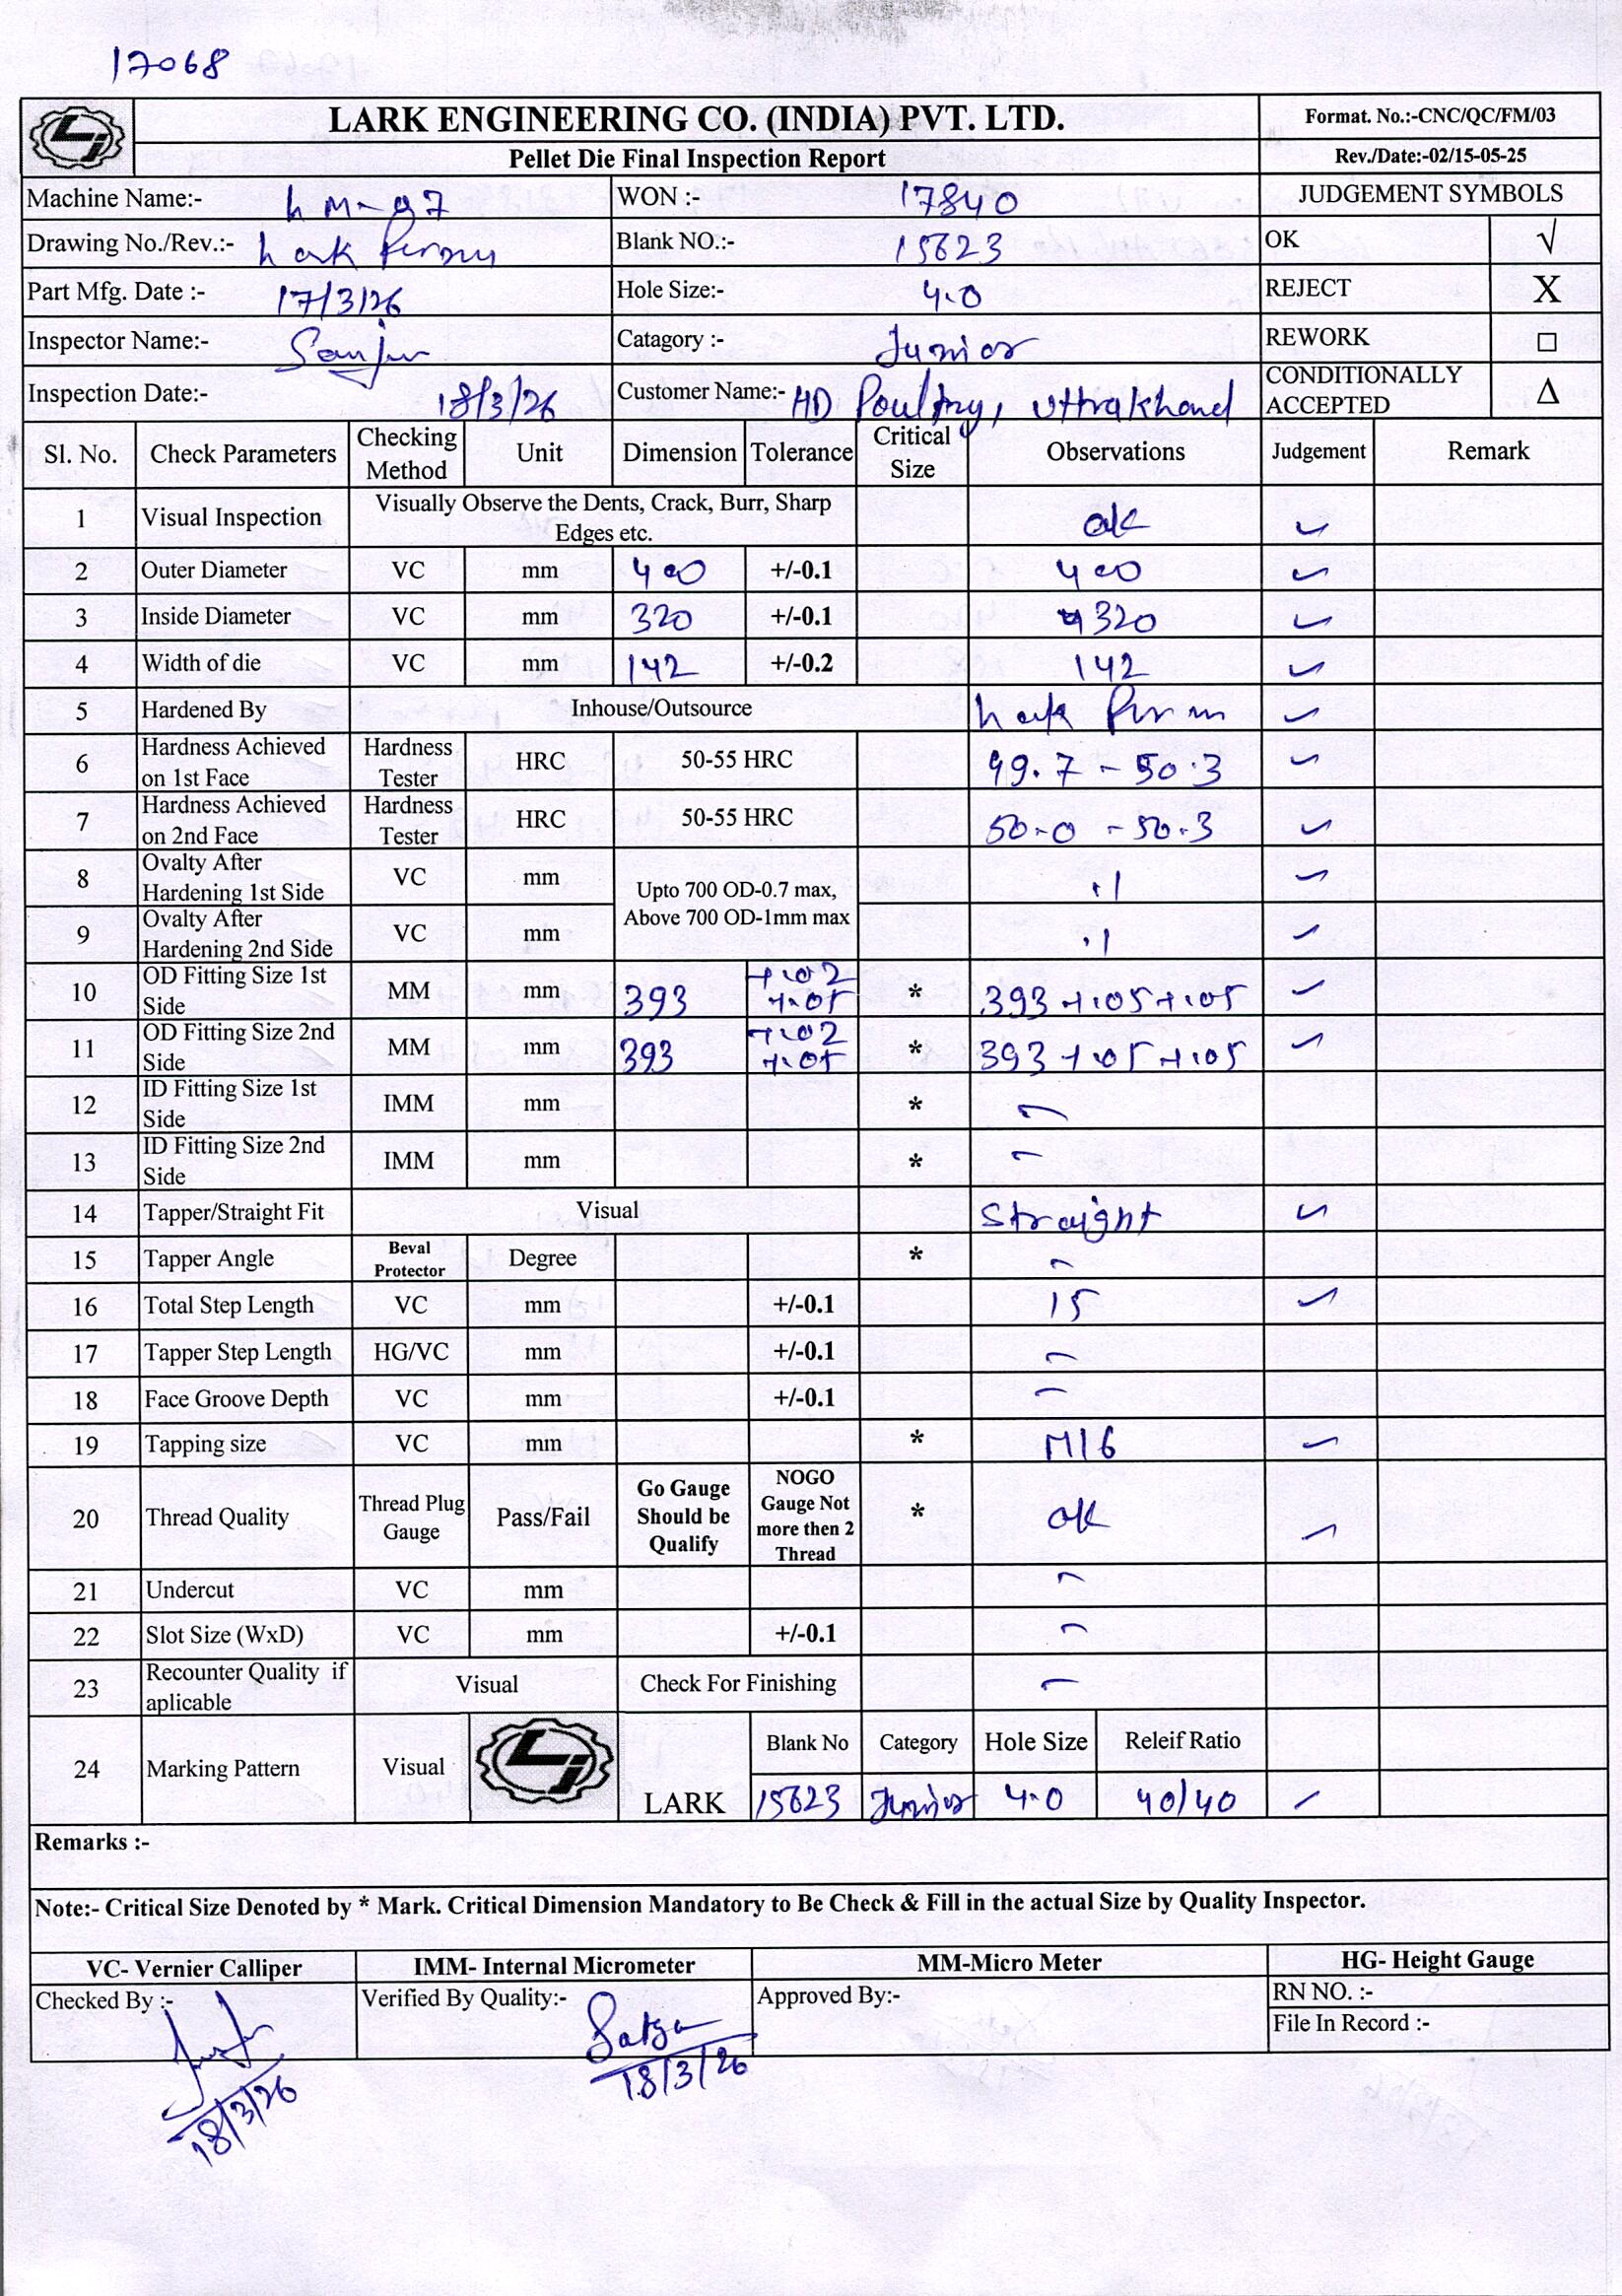 17068
LARK ENGINEERING CO. (INDIA) PVT. LTD.
Format. No.:-CNC/QC/FM/03
Pellet Die Final Inspection Report
Rev./Date:-02/15-05-25
Machine Name:- LM-07 WON :- 17840 JUDGEMENT SYMBOLS
Drawing No./Rev.:- Lark Blank NO.:- 15623 OK √
Part Mfg. Date :- 17/3/26 Hole Size:- 4.0 REJECT X
Inspector Name:- Sanju Catagory :- Junior REWORK □
Inspection Date:- 18/3/26 Customer Name:- HD Poultry, Uttrakhand CONDITIONALLY ACCEPTED Δ
Sl. No. Check Parameters Checking Method Unit Dimension Tolerance Critical Size Observations Judgement Remark
1 Visual Inspection Visually Observe the Dents, Crack, Burr, Sharp Edges etc. ok ✓
2 Outer Diameter VC mm 400 +/-0.1 400 ✓
3 Inside Diameter VC mm 320 +/-0.1 320 ✓
4 Width of die VC mm 142 +/-0.2 142 ✓
5 Hardened By Inhouse/Outsource Lark ✓
6 Hardness Achieved on 1st Face Hardness Tester HRC 50-55 HRC 49.7 - 50.3 ✓
7 Hardness Achieved on 2nd Face Hardness Tester HRC 50-55 HRC 50.0 - 50.3 ✓
8 Ovalty After Hardening 1st Side VC mm Upto 700 OD-0.7 max, Above 700 OD-1mm max .1 ✓
9 Ovalty After Hardening 2nd Side VC mm .1 ✓
10 OD Fitting Size 1st Side MM mm 393 +.02 +.05 * 393 +.05 +.05 ✓
11 OD Fitting Size 2nd Side MM mm 393 +.02 +.05 * 393 +.05 +.05 ✓
12 ID Fitting Size 1st Side IMM mm * -
13 ID Fitting Size 2nd Side IMM mm * -
14 Tapper/Straight Fit Visual Straight ✓
15 Tapper Angle Beval Protector Degree * -
16 Total Step Length VC mm +/-0.1 15 ✓
17 Tapper Step Length HG/VC mm +/-0.1 -
18 Face Groove Depth VC mm +/-0.1 -
19 Tapping size VC mm * M16 ✓
20 Thread Quality Thread Plug Gauge Pass/Fail Go Gauge Should be Qualify NOGO Gauge Not more then 2 Thread * ok ✓
21 Undercut VC mm -
22 Slot Size (WxD) VC mm +/-0.1 -
23 Recounter Quality if aplicable Visual Check For Finishing -
24 Marking Pattern Visual LARK Blank No Category Hole Size Releif Ratio
15623 Junior 4.0 40/40 ✓
Remarks :-
Note:- Critical Size Denoted by * Mark. Critical Dimension Mandatory to Be Check & Fill in the actual Size by Quality Inspector.
VC- Vernier Calliper IMM- Internal Micrometer MM-Micro Meter HG- Height Gauge
Checked By :- Verified By Quality:- Satya Approved By:- RN NO. :-
File In Record :-
18/3/26 18/3/26